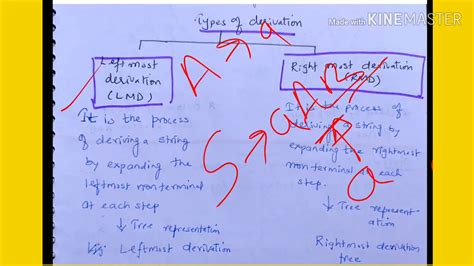 Made with KINEMASTER
Types of derivation
Leftmost
derivation
(LMD)
Right most derivation
(RMD)
A → a
S → aAA
a
It is the process
of deriving a string
by expanding the
leftmost nonterminal
at each step
↓ Tree representation
Eg: Leftmost derivation
It is the process of
deriving a string by
expanding the rightmost
nonterminal at each
step.
↓ Tree represent-
ation
Rightmost derivation
tree